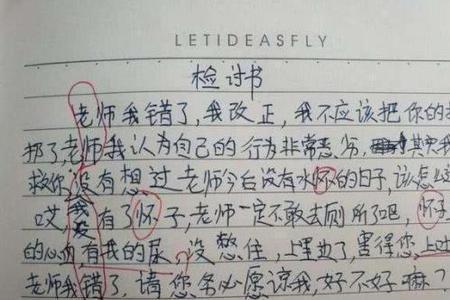 LETIDEASFLY
检讨书
老师我错了,我改正,我不应该把你的
扔了,老师我认为自己的行为非常恶劣,其实我
救你,没有想过老师今后没有水怀的日子,该怎么
哎,我没有了怀子,老师一定不敢去厕所了吧,怀子
的心血有我的尿,没憋住,上里边了,害得您上
老师我错了,请您务必愿谅我,好不好嘛?